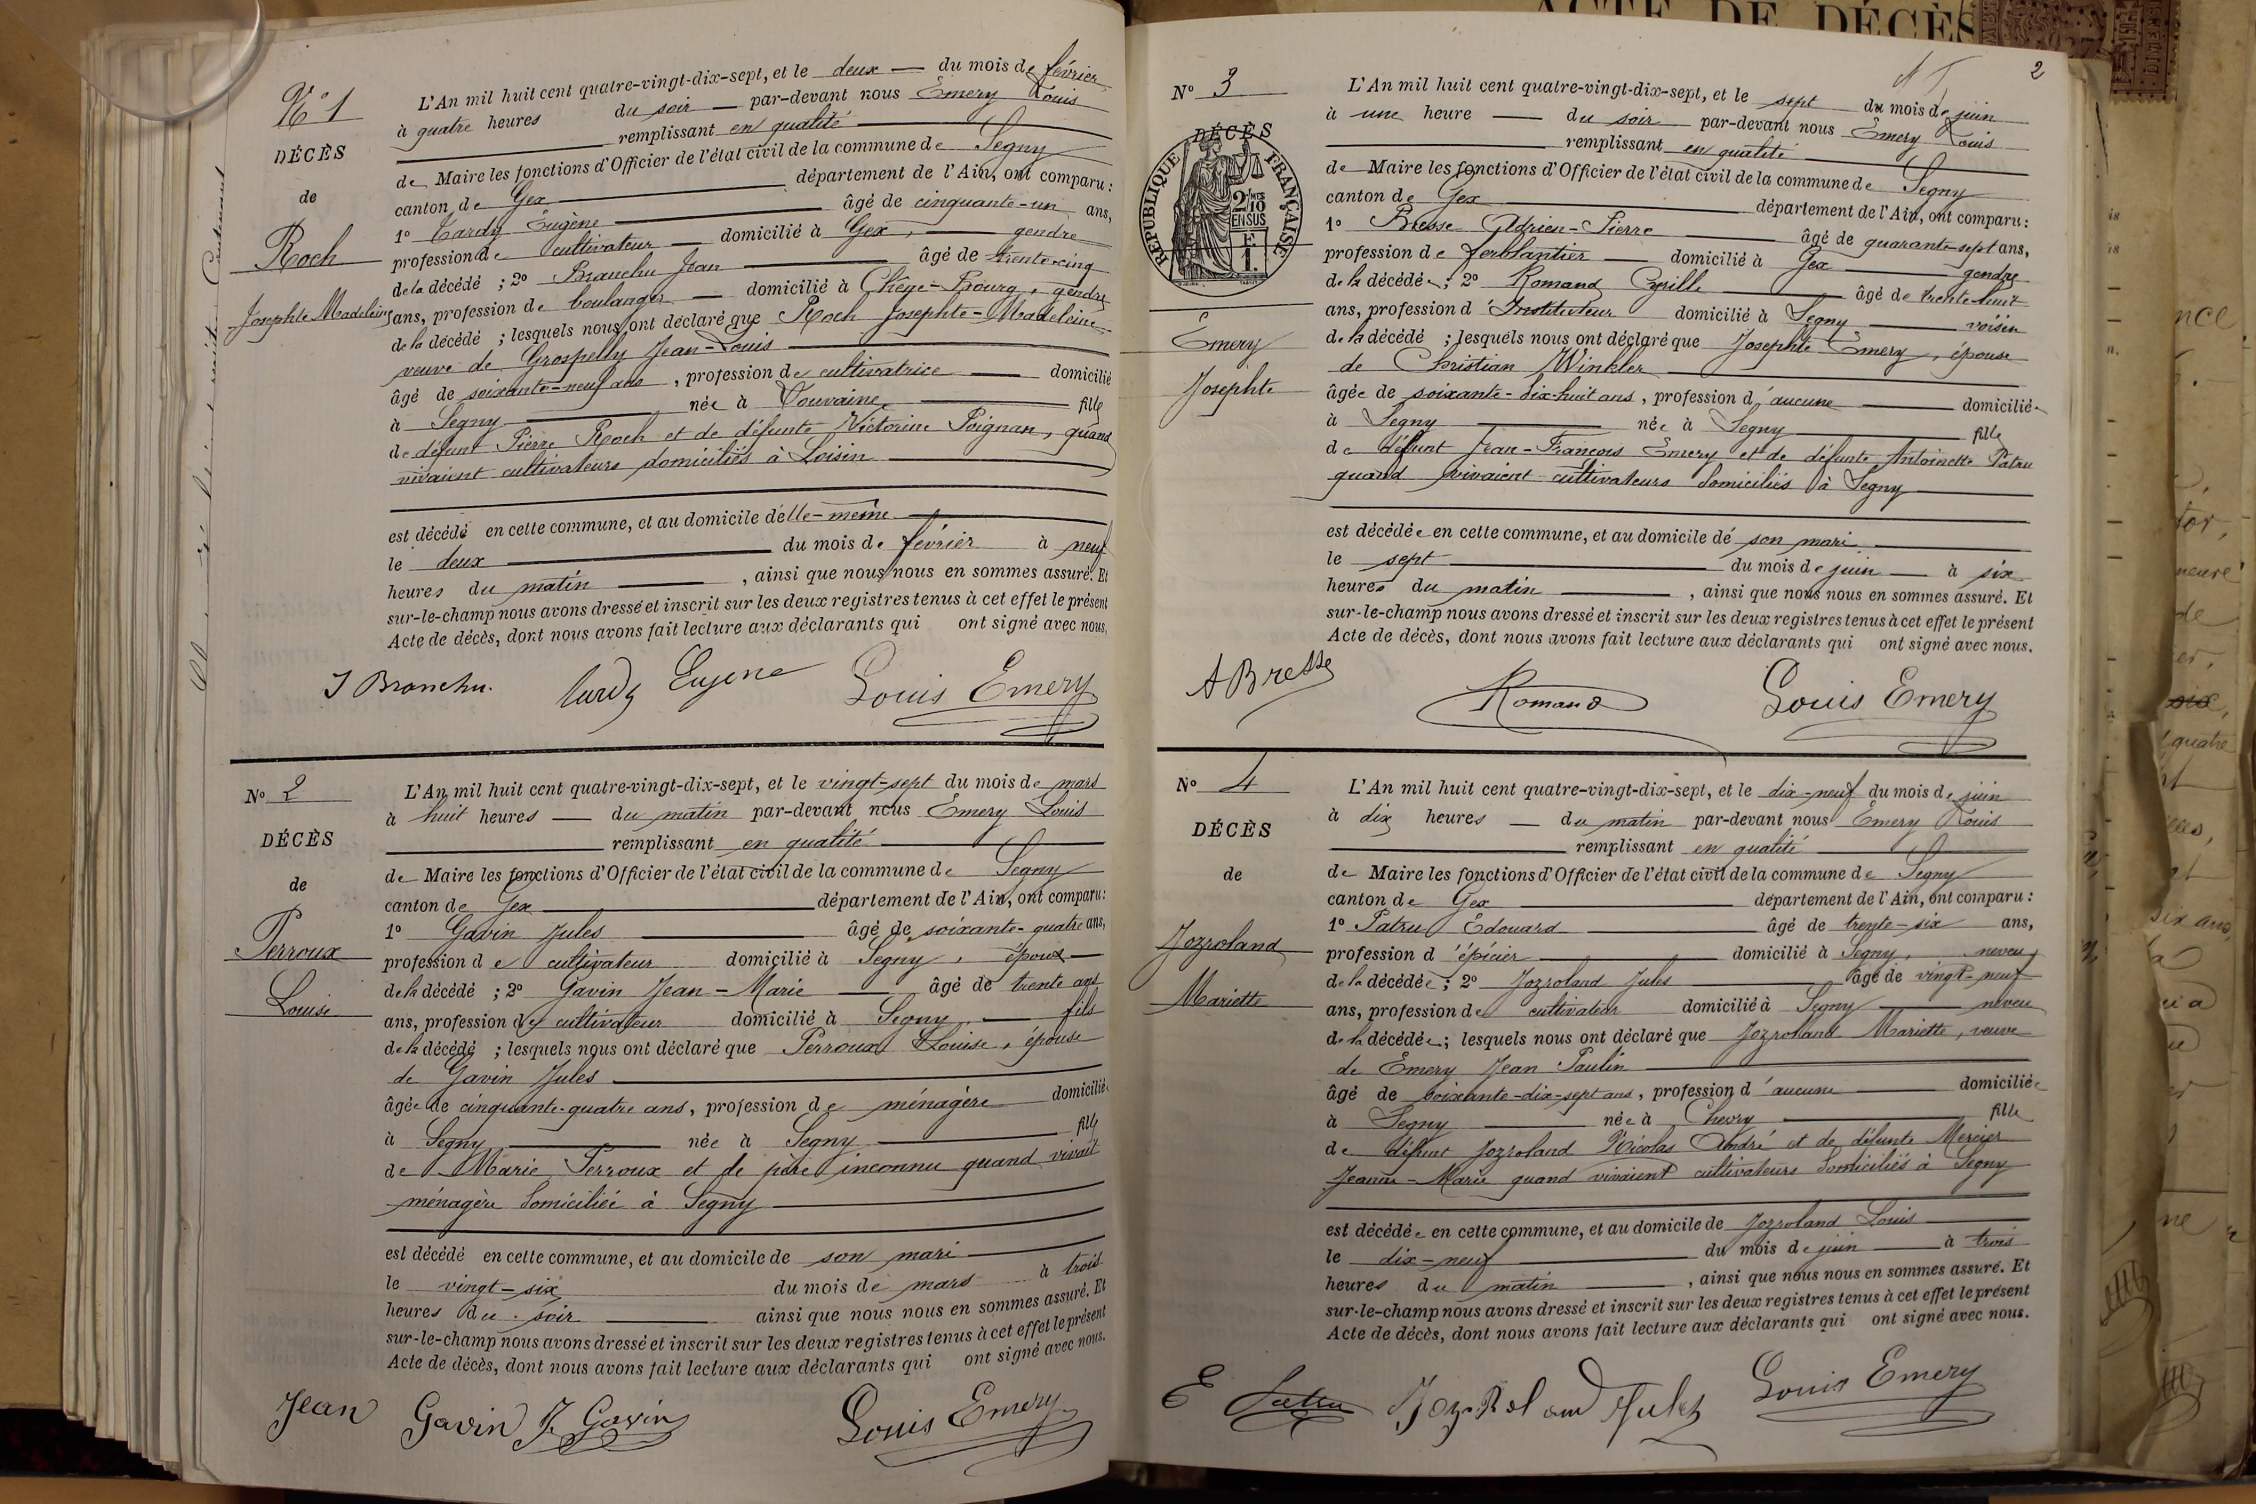 N° 1
DÉCÈS
de
Roch
Josephte Madeleine
L'An mil huit cent quatre-vingt-dix-sept, et le deux du mois de février
à quatre heures du soir par-devant nous Emery Louis
remplissant en qualité
de Maire les fonctions d'Officier de l'état civil de la commune de Segny
canton de Gex département de l'Ain, ont comparu :
1° Tardy Eugène âgé de cinquante-un ans,
profession de cultivateur domicilié à Gex, gendre
de la décédé ; 2° Branchu Jean âgé de trente-cinq
ans, profession de boulanger domicilié à Chêne-Bourg, gendre
de la décédé ; lesquels nous ont déclaré que Roch Josephte-Madeleine
veuve de Grospelly Jean-Louis
âgé de soixante-neuf ans, profession de cultivatrice domicilié
à Segny née à Touvaine fille
de défunt Pierre Roch et de défunte Victorine Poignan, quand
vivaient cultivateurs domiciliés à Loisin
est décédé en cette commune, et au domicile d'elle-même
le deux du mois de février à neuf
heures du matin, ainsi que nous nous en sommes assuré. Et
sur-le-champ nous avons dressé et inscrit sur les deux registres tenus à cet effet le présent
Acte de décès, dont nous avons fait lecture aux déclarants qui ont signé avec nous.
J Branchu. Tardy Eugene Louis Emery
N° 2
DÉCÈS
de
Perroux
Louise
L'An mil huit cent quatre-vingt-dix-sept, et le vingt-sept du mois de mars
à huit heures du matin par-devant nous Emery Louis
remplissant en qualité
de Maire les fonctions d'Officier de l'état civil de la commune de Segny
canton de Gex département de l'Ain, ont comparu :
1° Gavin Jules âgé de soixante-quatre ans,
profession de cultivateur domicilié à Segny, époux
de la décédé ; 2° Gavin Jean-Marie âgé de trente ans
ans, profession de cultivateur domicilié à Segny fils
de la décédé ; lesquels nous ont déclaré que Perroux Louise, épouse
de Gavin Jules
âgée de cinquante-quatre ans, profession de ménagère domicilié
à Segny née à Segny fille
de Marie Perroux et de père inconnu quand vivait
ménagère domiciliée à Segny
est décédé en cette commune, et au domicile de son mari
le vingt-six du mois de mars à trois
heures du soir ainsi que nous nous en sommes assuré. Et
sur-le-champ nous avons dressé et inscrit sur les deux registres tenus à cet effet le présent
Acte de décès, dont nous avons fait lecture aux déclarants qui ont signé avec nous.
Jean Gavin J. Gavin Louis Emery
ACTE DE DÉCÈS
2
N° 3
DÉCÈS
RÉPUBLIQUE FRANÇAISE
2/10
EN SUS
Emery
Josephte
L'An mil huit cent quatre-vingt-dix-sept, et le sept du mois de juin
à une heure du soir par-devant nous Emery Louis
remplissant en qualité
de Maire les fonctions d'Officier de l'état civil de la commune de Segny
canton de Gex département de l'Ain, ont comparu :
1° Bresse Adrien-Pierre âgé de quarante-sept ans,
profession de ferblantier domicilié à Gex gendre
de la décédée ; 2° Romand Cyrille âgé de trente-huit
ans, profession d'Instituteur domicilié à Segny voisin
de la décédé ; lesquels nous ont déclaré que Josephte Emery, épouse
de Christian Winkler
âgée de soixante-dix-huit ans, profession d'aucune domiciliée
à Segny née à Segny fille
de défunt Jean-François Emery et de défunte Antoinette Patru
quand vivaient cultivateurs domiciliés à Segny
est décédée en cette commune, et au domicile de son mari
le sept du mois de juin à six
heures du matin, ainsi que nous nous en sommes assuré. Et
sur-le-champ nous avons dressé et inscrit sur les deux registres tenus à cet effet le présent
Acte de décès, dont nous avons fait lecture aux déclarants qui ont signé avec nous.
A Bresse Romand Louis Emery
N° 4
DÉCÈS
de
Jozroland
Mariette
L'An mil huit cent quatre-vingt-dix-sept, et le dix-neuf du mois de juin
à dix heures du matin par-devant nous Emery Louis
remplissant en qualité
de Maire les fonctions d'Officier de l'état civil de la commune de Segny
canton de Gex département de l'Ain, ont comparu :
1° Patru Edouard âgé de trente-six ans,
profession d'épicier domicilié à Segny, neveu
de la décédée ; 2° Jozroland Jules âgé de vingt-neuf
ans, profession de cultivateur domicilié à Segny neveu
de la décédée ; lesquels nous ont déclaré que Jozroland Mariette, veuve
de Emery Jean Paulin
âgée de soixante-dix-sept ans, profession d'aucune domiciliée
à Segny née à Chevry fille
de défunt Jozroland Nicolas André et de défunte Mercier
Jeanne-Marie quand vivaient cultivateurs domiciliés à Segny
est décédée en cette commune, et au domicile de Jozroland Louis
le dix-neuf du mois de juin à trois
heures du matin, ainsi que nous nous en sommes assuré. Et
sur-le-champ nous avons dressé et inscrit sur les deux registres tenus à cet effet le présent
Acte de décès, dont nous avons fait lecture aux déclarants qui ont signé avec nous.
E Patru Jozroland Jules Louis Emery